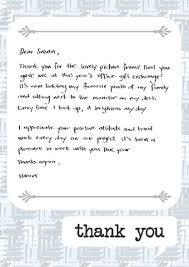 Dear Susan,
Thank you for the lovely picture frame that you
gave me at this year's office gift exchange!
It's now holding my favorite photo of my family
and sitting next to the monitor on my desk.
Every time I look up, it brightens my day!
I appreciate your positive attitude and hard
work every day on our project. It's been a
pleasure to work with you this year.
Thanks again,
thank you